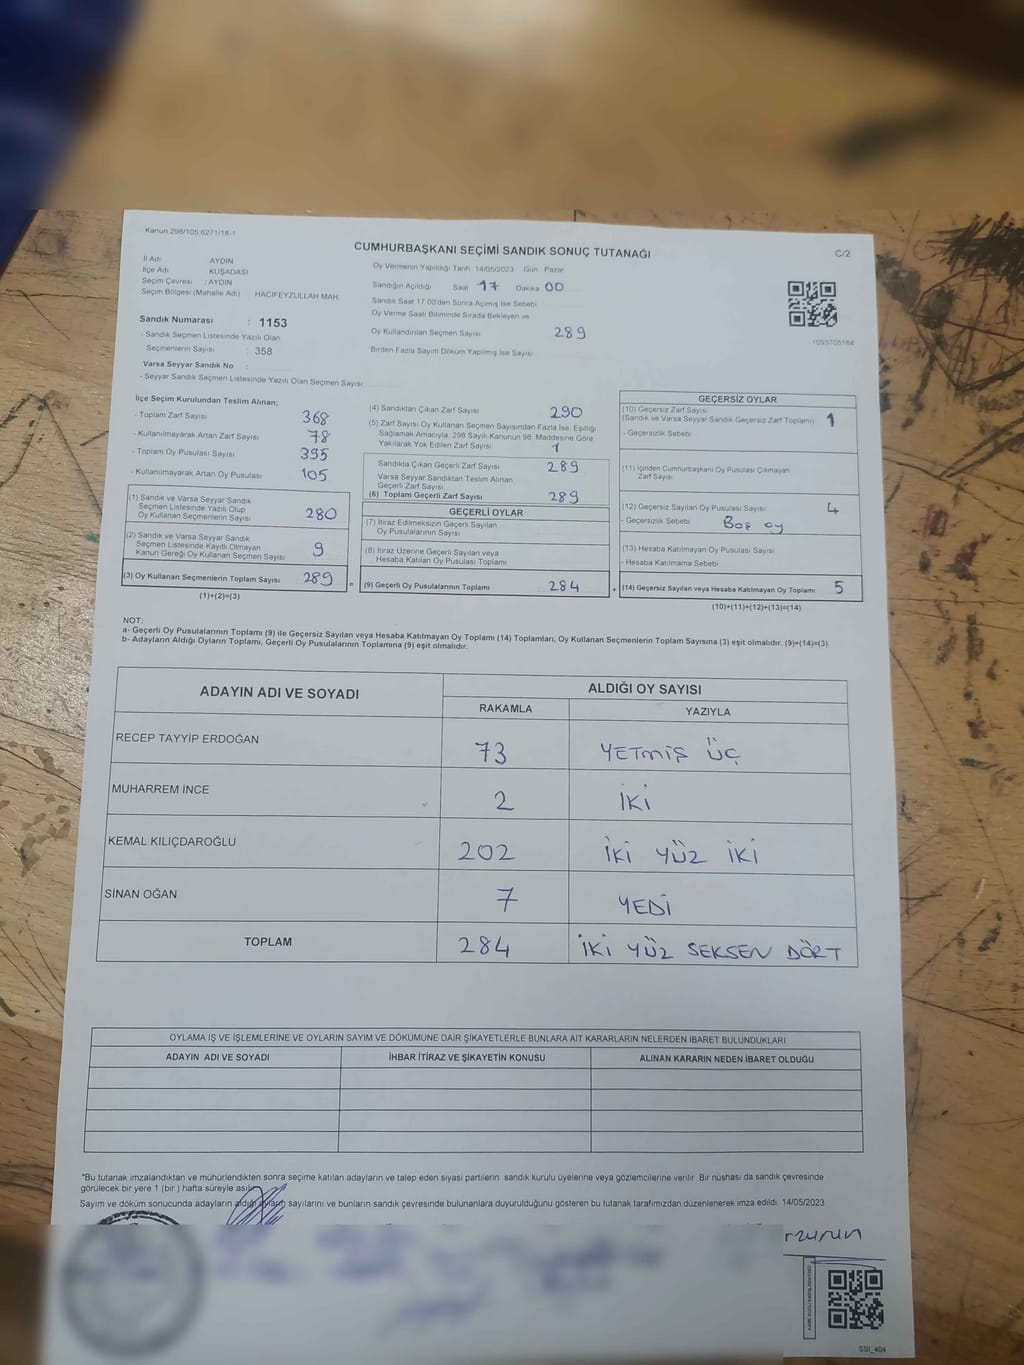 Kanun:298/105.6271/18-1
CUMHURBAŞKANI SEÇİMİ SANDIK SONUÇ TUTANAĞI
C/2
İl Adı AYDIN
İlçe Adı KUŞADASI
Seçim Çevresi : AYDIN
Seçim Bölgesi (Mahalle Adı) HACIFEYZULLAH MAH
Sandık Numarası : 1153
- Sandık Seçmen Listesinde Yazılı Olan
Seçmenlerin Sayısı : 358
Varsa Seyyar Sandık No :
- Seyyar Sandık Seçmen Listesinde Yazılı Olan Seçmen Sayısı
Oy Vermenin Yapıldığı Tarih 14/05/2023 Gün Pazar
Sandığın Açıldığı Saat 17 Dakika 00
Sandık Saat 17.00'den Sonra Açılmış İse Sebebi
Oy Verme Saati Bitiminde Sırada Bekleyen ve
Oy Kullandırılan Seçmen Sayısı 289
Birden Fazla Sayım Döküm Yapılmış İse Sayısı
1093705184
İlçe Seçim Kurulundan Teslim Alınan;
- Toplam Zarf Sayısı 368
- Kullanılmayarak Artan Zarf Sayısı 78
- Toplam Oy Pusulası Sayısı 395
- Kullanılmayarak Artan Oy Pusulası 105
(1) Sandık ve Varsa Seyyar Sandık
Seçmen Listesinde Yazılı Olup
Oy Kullanan Seçmenlerin Sayısı 280
(2) Sandık ve Varsa Seyyar Sandık
Seçmen Listesinde Kayıtlı Olmayan
Kanun Gereği Oy Kullanan Seçmen Sayısı 9
(3) Oy Kullanan Seçmenlerin Toplam Sayısı 289
(1)+(2)=(3)
(4) Sandıktan Çıkan Zarf Sayısı 290
(5) Zarf Sayısı Oy Kullanan Seçmen Sayısından Fazla İse, Eşitliği
Sağlamak Amacıyla, 298 Sayılı Kanunun 98. Maddesine Göre
Yakılarak Yok Edilen Zarf Sayısı 1
Sandıkta Çıkan Geçerli Zarf Sayısı 289
Varsa Seyyar Sandıktan Teslim Alınan
Geçerli Zarf Sayısı
(6) Toplam Geçerli Zarf Sayısı 289
GEÇERLİ OYLAR
(7) İtiraz Edilmeksizin Geçerli Sayılan
Oy Pusulalarının Sayısı
(8) İtiraz Üzerine Geçerli Sayılan veya
Hesaba Katılan Oy Pusulası Toplamı
= (9) Geçerli Oy Pusulalarının Toplamı 284
GEÇERSİZ OYLAR
(10) Geçersiz Zarf Sayısı
(Sandık ve Varsa Seyyar Sandık Geçersiz Zarf Toplamı) 1
- Geçersizlik Sebebi
(11) İçinden Cumhurbaşkanı Oy Pusulası Çıkmayan
Zarf Sayısı
(12) Geçersiz Sayılan Oy Pusulası Sayısı 4
- Geçersizlik Sebebi Boş oy
(13) Hesaba Katılmayan Oy Pusulası Sayısı
- Hesaba Katılmama Sebebi
+ (14) Geçersiz Sayılan veya Hesaba Katılmayan Oy Toplamı 5
(10)+(11)+(12)+(13)=(14)
NOT:
a- Geçerli Oy Pusulalarının Toplamı (9) ile Geçersiz Sayılan veya Hesaba Katılmayan Oy Toplamı (14) Toplamları, Oy Kullanan Seçmenlerin Toplam Sayısına (3) eşit olmalıdır. (9)+(14)=(3)
b- Adayların Aldığı Oyların Toplamı, Geçerli Oy Pusulalarının Toplamına (9) eşit olmalıdır.
ADAYIN ADI VE SOYADI
ALDIĞI OY SAYISI
RAKAMLA YAZIYLA
RECEP TAYYİP ERDOĞAN 73 YETMİŞ ÜÇ
MUHARREM İNCE 2 İKİ
KEMAL KILIÇDAROĞLU 202 İKİ YÜZ İKİ
SİNAN OĞAN 7 YEDİ
TOPLAM 284 İKİ YÜZ SEKSEN DÖRT
OYLAMA İŞ VE İŞLEMLERİNE VE OYLARIN SAYIM VE DÖKÜMÜNE DAİR ŞİKAYETLERLE BUNLARA AİT KARARLARIN NELERDEN İBARET BULUNDUKLARI
ADAYIN ADI VE SOYADI İHBAR İTİRAZ VE ŞİKAYETİN KONUSU ALINAN KARARIN NEDEN İBARET OLDUĞU
*Bu tutanak imzalandıktan ve mühürlendikten sonra seçime katılan adayların ve talep eden siyasi partilerin sandık kurulu üyelerine veya gözlemcilerine verilir. Bir nüshası da sandık çevresinde
görülecek bir yere 1 (bir ) hafta süreyle asılır.
Sayım ve döküm sonucunda adayların aldığı oyların sayılarını ve bunların sandık çevresinde bulunanlara duyurulduğunu gösteren bu tutanak tarafımızdan düzenlenerek imza edildi. 14/05/2023
rzurum
SSI_404